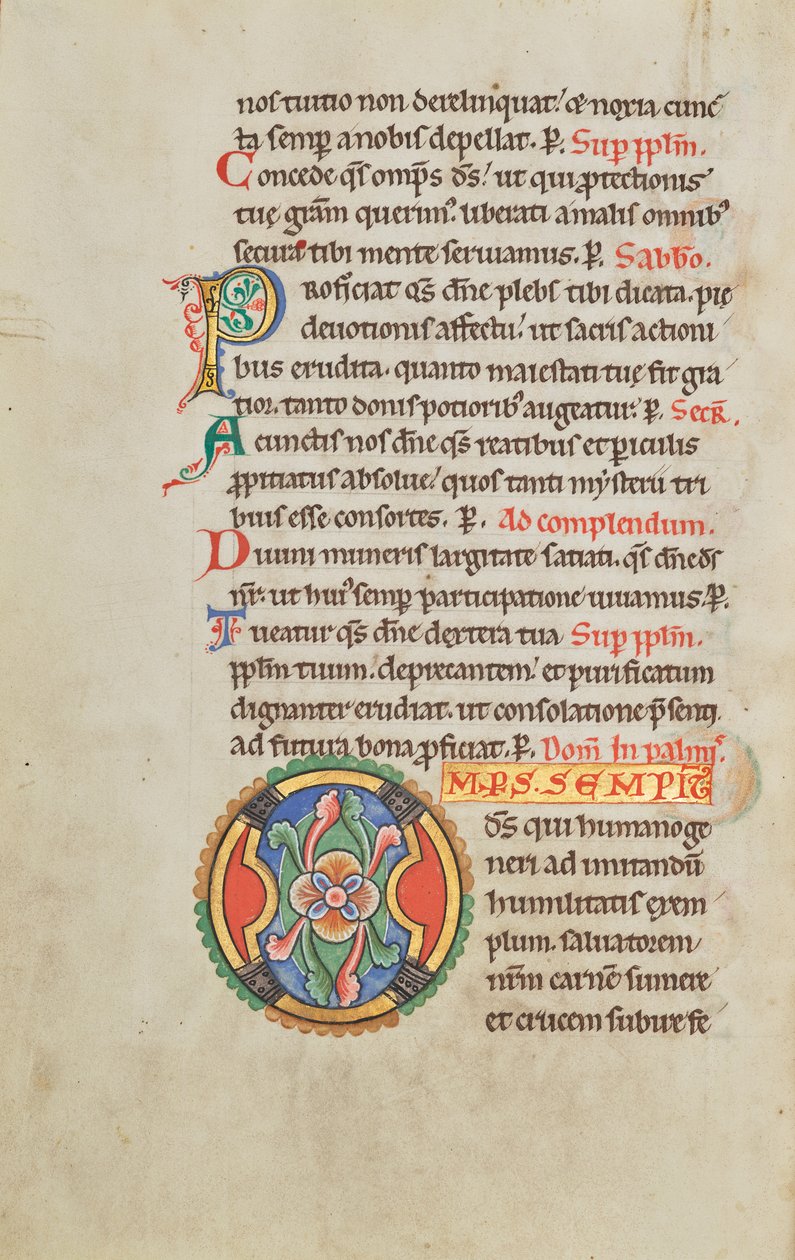 nos tuitio non derelinquat. & noxia cunc
ta semp̄ a nobis depellat. P̱. Sup̱ pplm̄.
Concede qs̄ omp̄s ds̄. ut qui ꝓtectionis
tuę gr̄am querimꝰ. liberati a malis omnibꝰ
secura tibi mente seruiamus. P̱. Sabb̄o.
Proficiat qs̄ dn̄e plebs tibi dicata. pię
deuotionis affectu. ut sacris actioni
bus erudita. quanto maiestati tuę fit gra
tior. tanto donis potioribꝰ augeatur. P̱. Secr̄.
A cunctis nos dn̄e qs̄ reatibus et ꝑiculis
ꝓpitiatus absolue. quos tanti mysterii tri
buis esse consortes. P̱. Ad complendum.
Diuini muneris largitate satiati. qs̄ dn̄e ds̄
nr̄. ut huiꝰ semp̱ participatione uiuamus. P̱.
Tueatur qs̄ dn̄e dextera tua Sup̱ pplm̄.
pplm̄ tuum. deprecantem. et purificatum
dignanter erudiat. ut consolatione p̄senti.
ad futura bona ꝓficiat. P̱. Dom̄ In palmis.
OMP̄S. SEMPIT̄
ds̄ qui humano ge
neri ad imitandū
humilitatis exem
plum. saluatorem
nr̄m carnē sumere
et crucem subire fe